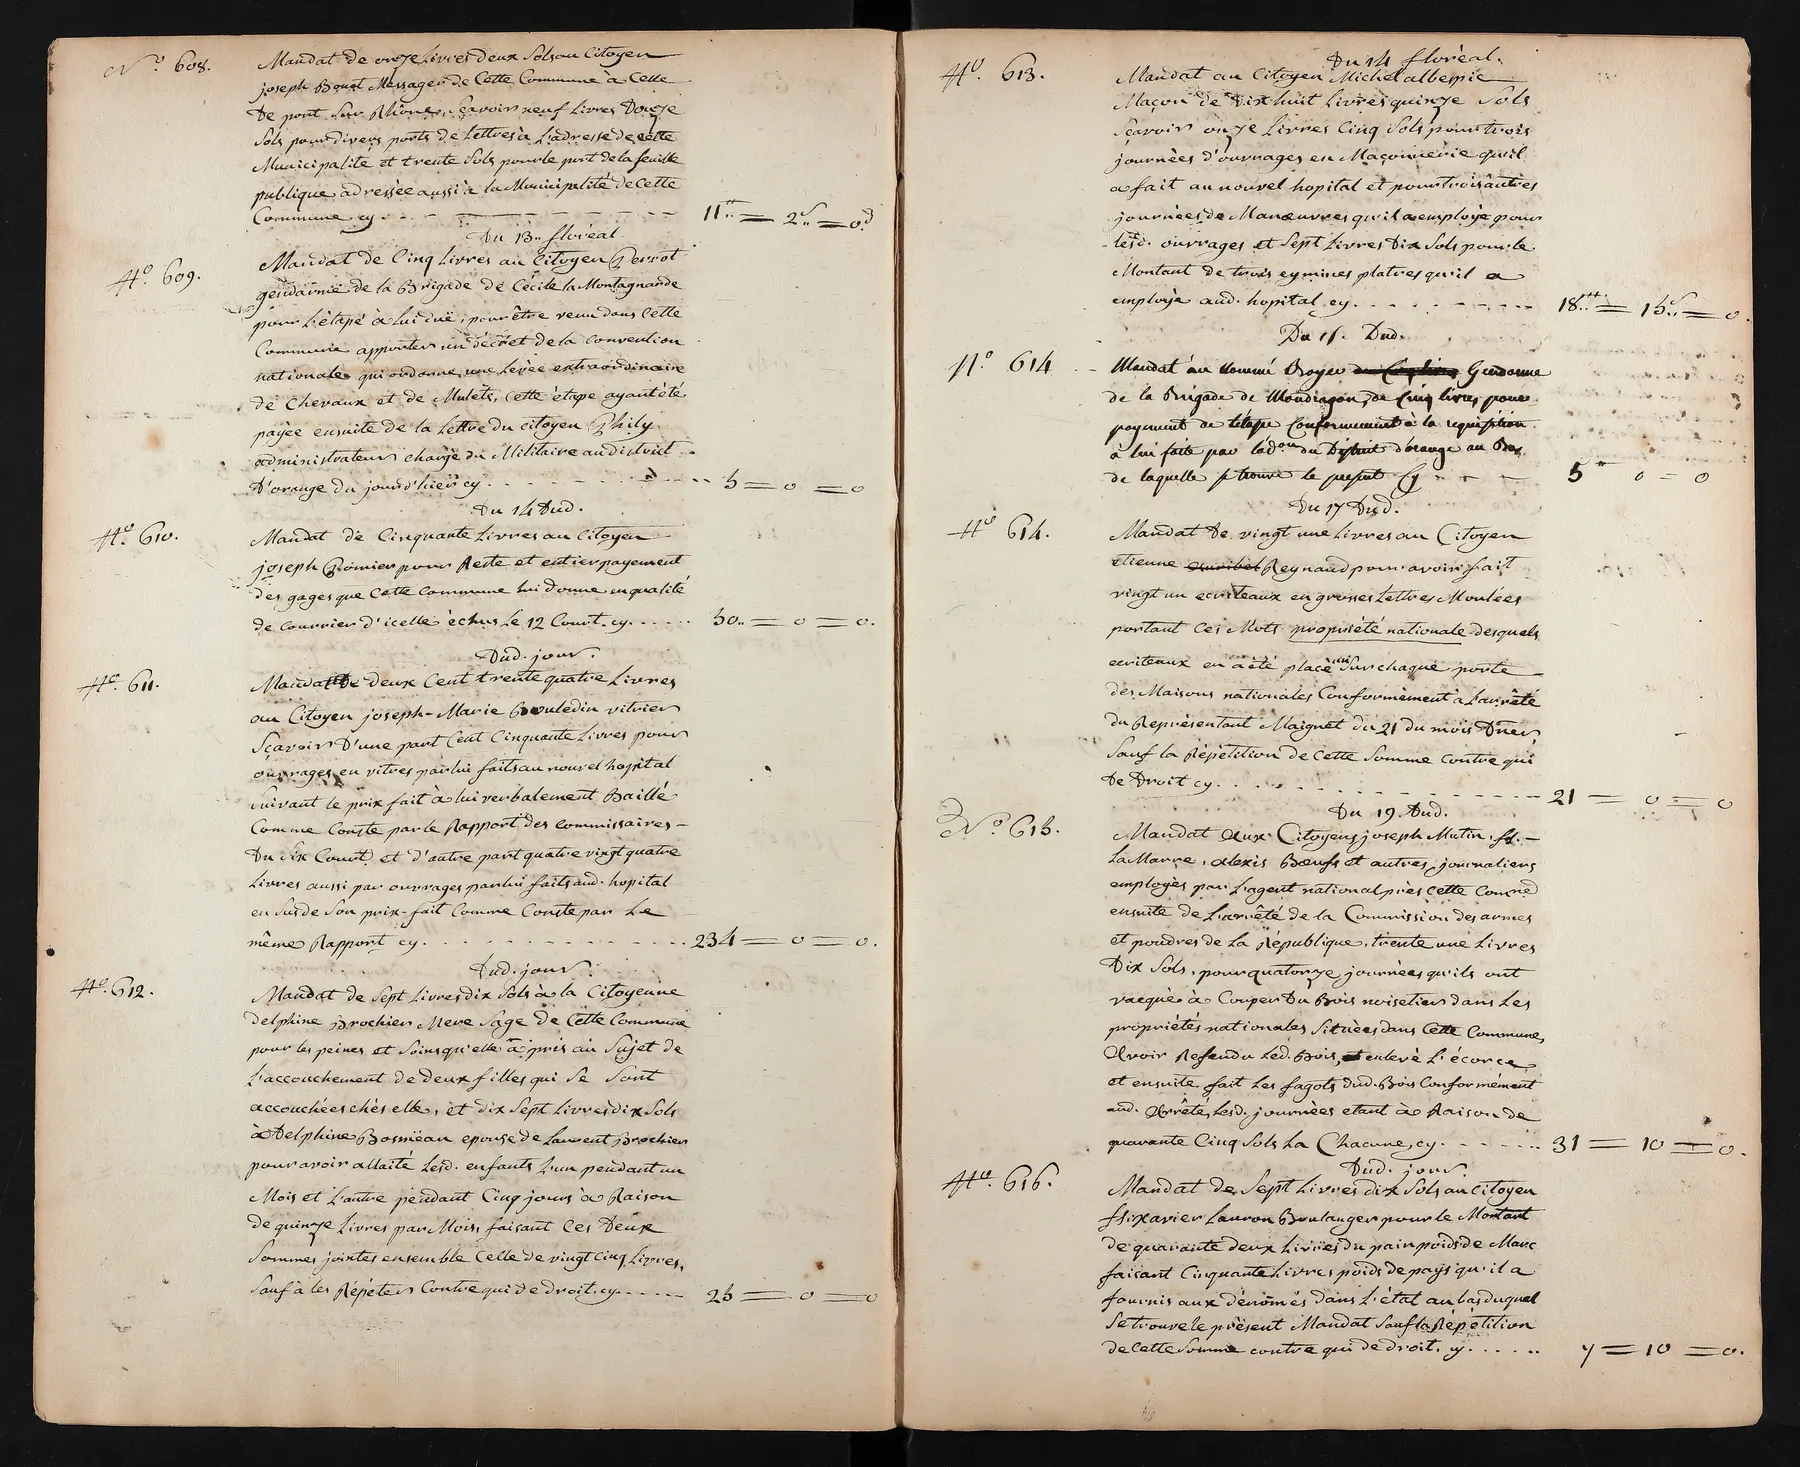 N.º 608.
Mandat de onze Livres deux Sols au Citoyen
joseph Benet Messager de Cette Commune à Celle
De pont Sur Rhône, Sçavoir neuf Livres Douze
Sols pour divers ports de Lettres à L'adresse de cette
Municipalité et trente Sols pour le port de la feuille
publique adressée aussi à la Municipalité de Cette
Commune cy. 11.tt = 2.s = 0.d
Du 13.. floréal
N.º 609.
Mandat de Cinq Livres au Citoyen Perrot
gendarme de la Brigade de Cécile la Montagnarde
pour L'étape à Lui düe, pour être venu dans Cette
Commune apporter un décret de la convention
nationale qui ordonne une Levée extraordinaire
de Chevaux et de Mulets, Cette étape ayant été
payée ensuite de la Lettre du citoyen Phily
administrateur chargé du Militaire au district
D'orange du jour d'hier cy. 5 = 0 = 0
Du 14 Dud.
N.º 610.
Mandat de Cinquante Livres au Citoyen
joseph Pomier pour Reste et entier payement
des gages que Cette Commune lui donne en qualité
de Courrier d'icelle échus Le 12 Court. cy. 50.. = 0 = 0.
Dud. jour.
N.º 611.
Mandat De deux Cent trente quatre Livres
au Citoyen joseph-Marie Bouledin vitrier
Sçavoir D'une part Cent Cinquante Livres pour
ouvrages en vitres par lui faits au nouvel hopital
suivant le prix fait à lui verbalement Baillé
Comme Conste par le Rapport des commissaires
Du Six Court. et d'autre part quatre vingt quatre
Livres aussi par ouvrages par lui faits aud. hopital
en Sus de Son prix-fait Comme Conste par Le
même Rapport cy. 234 = 0 = 0.
Dud. jour.
N.º 612.
Mandat de Sept Livres dix Sols à la Citoyenne
delphine Brochier Mere Sage de Cette Commune
pour les peines et Soins qu'elle a pris au Sujet de
L'accouchement de deux filles qui Se Sont
accouchées chés elle, et dix Sept Livres dix Sols
à Delphine Bosnieau epouse de Laurent Brochier
pour avoir allaité Lesd. enfants L'un pendant un
Mois et L'autre pendant Cinq jours à Raison
de quinze Livres par Mois, faisant Ces Deux
Sommes jointes ensemble Celle de vingt Cinq Livres,
Sauf à les Répéter Contre qui de droit. cy. 25 = 0 = 0
Du 14 floréal.
N.º 613.
Mandat au Citoyen Michel albepie
Maçon de Dix huit Livres quinze Sols
Sçavoir onze Livres Cinq Sols pour trois
journées d'ouvrages en Maçonnerie qu'il
a fait au nouvel hopital et pour trois autres
journées de Manœuvres qu'il a employé pour
lesd. ouvrages et Sept Livres Dix Sols pour le
Montant de trois eymines platres qu'il a
employé aud. hopital cy. 18.tt = 15.s = 0.
Du 15. Dud.
N.º 614
Mandat au nommé Broyer Gendarme
de la Brigade de Mondragon, de Cinq livres pour
payement de l'étape Conformement à la requisition
à lui faite par lad.on du District d'orange au Bas
de laquelle se trouve le present Cy 5 tt 0 = 0
Du 17 Dud.
N.º 614.
Mandat De vingt une Livres au Citoyen
etienne Reynaud pour avoir fait
vingt un ecriteaux en grosses Lettres Moulées
portant Ces Mots propriété nationale desquels
ecriteaux en a été placé un Sur chaque porte
des Maisons nationales Conformément à L'arrêté
du Représentant Maignet du 21 du mois D'hier,
Sauf la Répétition de Cette Somme contre qui
De Droit cy. 21 = 0 = 0
Du 19 Dud.
N.º 615.
Mandat Aux Citoyens joseph Mutin, fs.
La Marre, alexis Bœufs et autres journaliers
employés par L'agent national près Cette Comne
ensuite de L'arrêté de la Commission des armes
et poudres de La République, trente une Livres
Dix Sols, pour quatorze journées qu'ils ont
vacquée à Couper Du Bois noisetier dans Les
propriétés nationales Situées dans Cette Commune,
Avoir Refendu Led. Bois, enlevé L'écorce
et ensuite fait Les fagots dud. Bois Conformément
aud. Arrêté, Lesd. journées etant à Raison de
quarante Cinq Sols La Chacune, cy. 31 = 10 = 0.
Dud. jour.
N.º 616.
Mandat de Sept Livres dix Sols au Citoyen
fs. xavier Lauron Boulanger pour le Montant
de quarante deux Livres du pain poids de Marc
faisant Cinquante Livres poids de pays qu'il a
fournis aux dénomés dans L'état au bas duquel
Se trouve le présent Mandat Sauf la Répétition
de Cette Somme contre qui de droit. cy. 7 = 10 = 0.